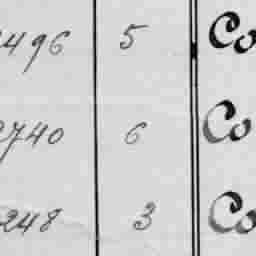 496 5 Co
2740 6 Co
248 3 Co